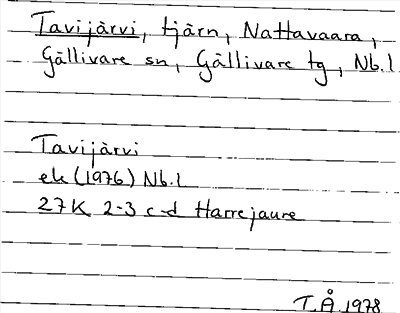 Tavijärvi, tjärn, Nattavaara,
Gällivare sn, Gällivare tg, Nb.l
Tavijärvi
ek (1976) Nb.l
27K 2-3 c-d Harrejaure
T.Å 1978